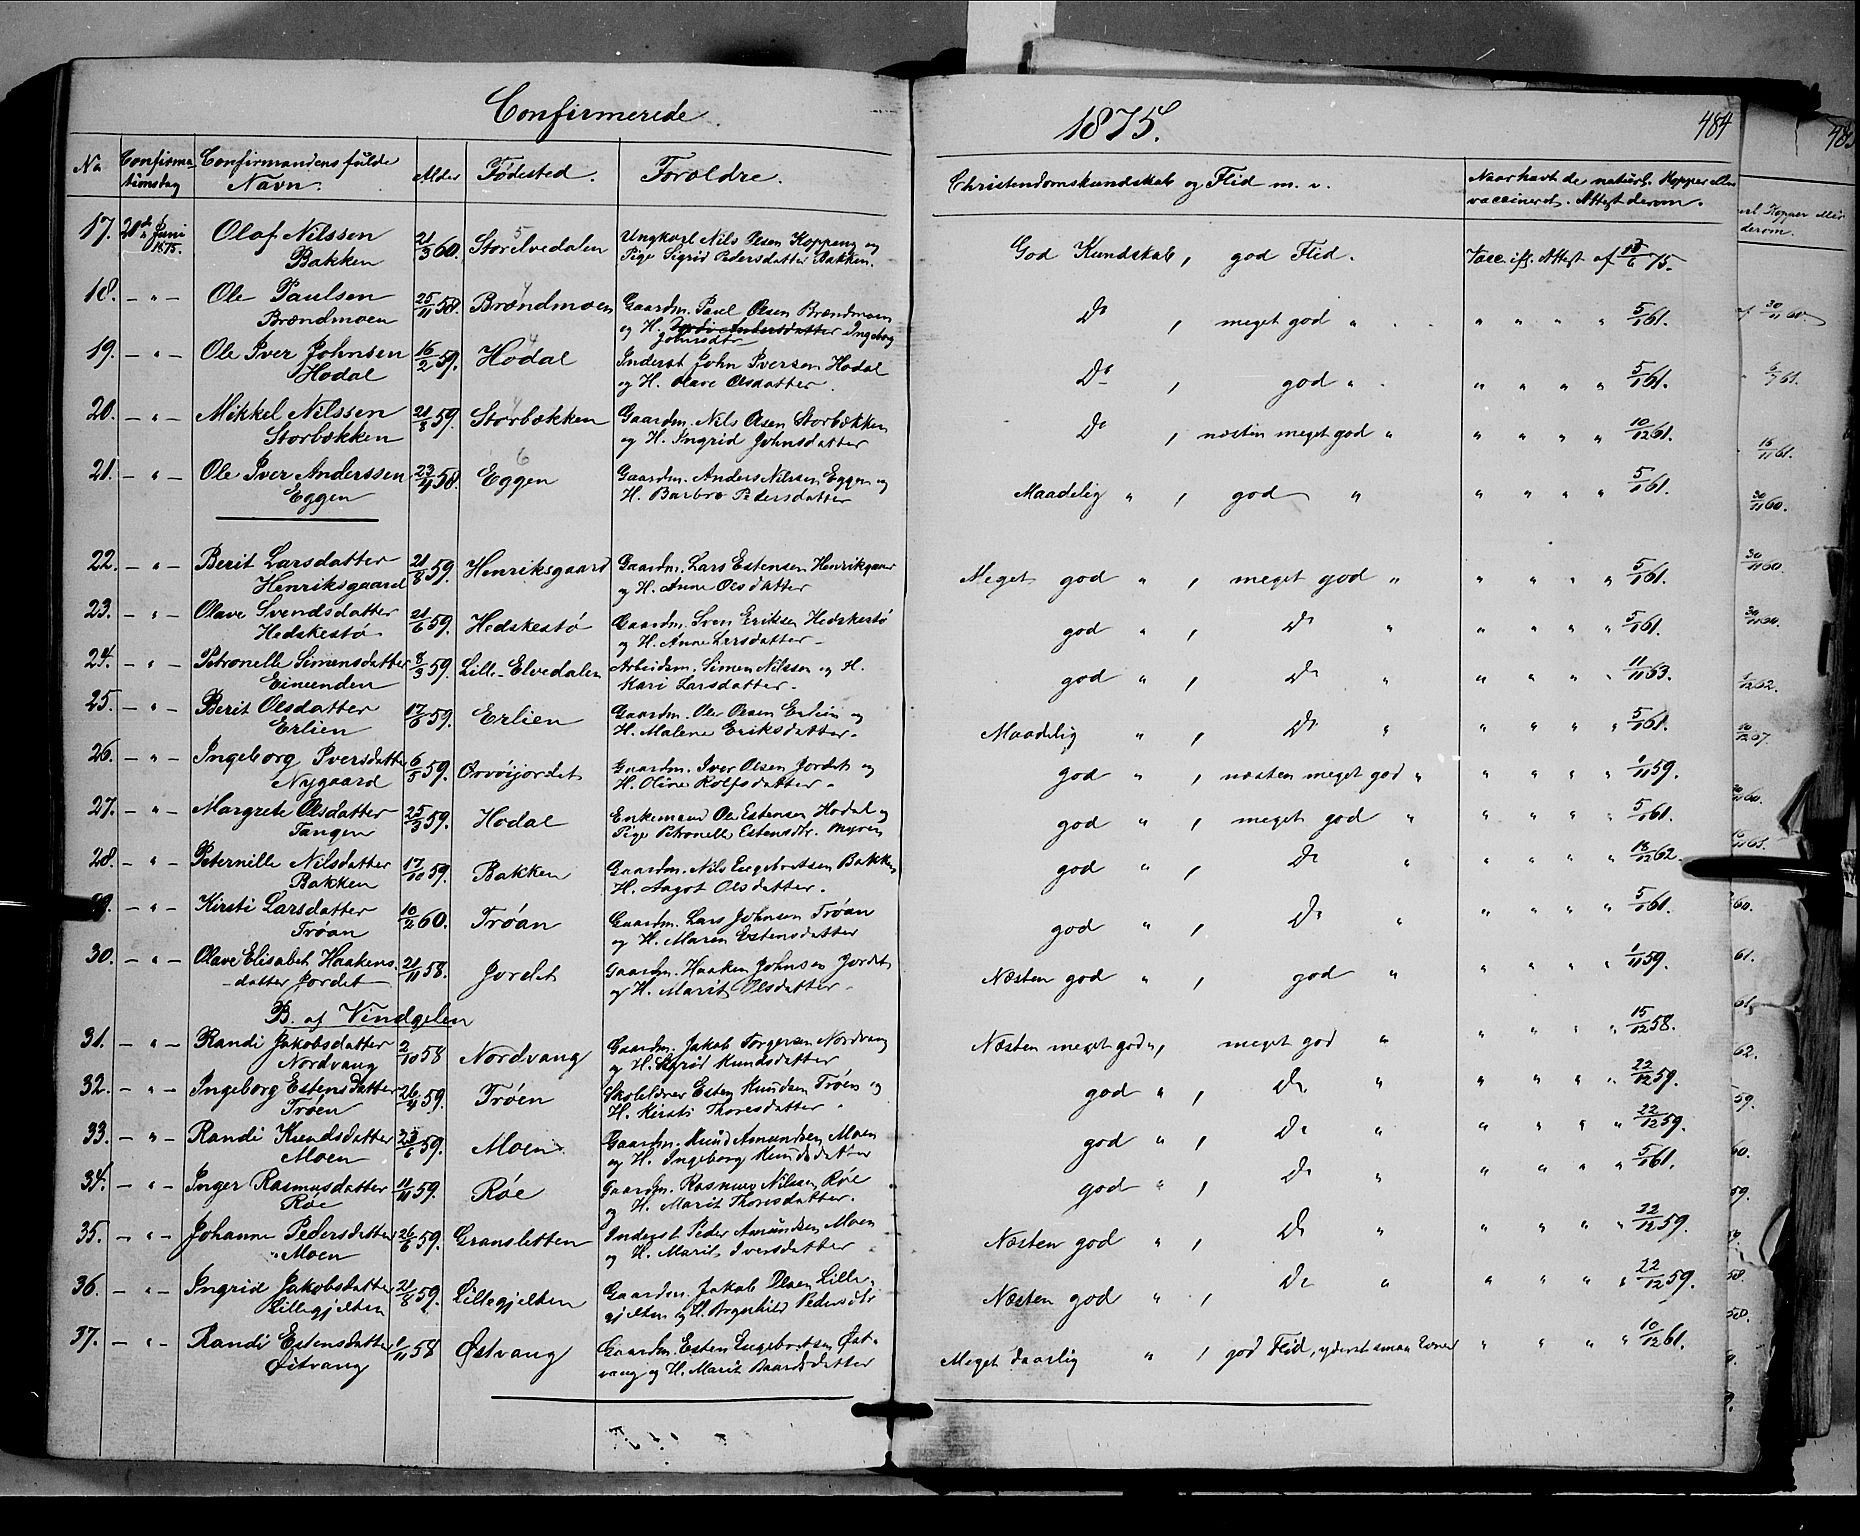 Confirmerede
1875.
484
No Confirmationsdag Confirmandens fulde Navn. Alder Fødested. Forældre. Christendomskundskab og Flid m. v. Naar havt de naturl. Kopper eller vaccineret. Attest derom.
17. 20de Juni 1875. Olaf Nilssen Bakken 21/3 60. Storelvedalen 5 Ungkarl Nils Olsen Koppang og Pige Sigrid Pedersdatter Bakken. God Kundskab, god Flid. Vacc. ifl. Attest af 75.
18. - " - Ole Paulsen Brændmoen 25/11 58. Brændmoen 4 Gaardm. Paul Olsen Brændmoen og H. Ingeborg Johnsdtr Do , meget god " " " " " 5/1 61.
19. - " - Ole Iver Johnsen Hodal 16/2 59. Hodal 4 Inderst John Iversen Hodal og H. Olave Olsdatter. Do , god " " " " " 5/1 61.
20. - " - Mikkel Nilssen Storbækken 21/5 59. Storbækken 4 Gaardm. Nils Olsen Storbækken og H. Ingrid Johnsdatter Do , næsten meget god " " " " " 10/12 61.
21. - " - Ole Iver Anderssen Eggen 23/4 58. Eggen 6 Gaardm. Anders Nilssen Eggen og H. Barbro Pedersdatter Maadelig " , god " " " " " 5/1 61.
22. - " - Berit Larsdatter Henriksgaard 21/8 59. Henriksgaard Gaardm. Lars Estensen Henriksgaard og H. Anne Olsdatter Meget god " , meget god " " " " " 5/1 61.
23. - " - Olave Svendsdatter Hedskestø 21/6 59. Hedskestø Gaardm. Sven Eriksen Hedskestø og H. Anne Larsdatter god " , Do " " " " " 5/1 61.
24. - " - Petronelle Simensdatter 8/3 59. Lille-Elvedalen Arbeidsm. Simen Nilssen og H. Kari Larsdatter. god " , Do " " " " " 11/11 63.
25. - " - Berit Olsdatter Erlien 17/6 59. Erlien Gaardm. Ole Olsen Erlien og H. Malene Eriksdatter. Maadelig " , Do " " " " " 5/1 61.
26. - " - Ingeborg Iversdatter Nygaard 6/5 59. Gaardm. Iver Olsen Jordet og H. Oline Rolfsdatter. god " , næsten meget god " " " " " 1/11 59.
27. - " - Margrete Olsdatter Tangen 25/3 59. Hodal Enkemand Ole Estensen Hodal og Pige Petronelle Estensdtr. Myren god " , meget god " " " " " 5/1 61.
28. - " - Peternille Nilsdatter Bakken 17/10 59. Bakken Gaardm. Nils Engebretsen Bakken H. Aagot Olsdatter. god " , Do " " " " " 18/12 62.
29. - " - Kirsti Larsdatter Trøan 10/2 60. Trøan Gaardm. Lars Johnsen Trøan og H. Maren Estensdatter god " , Do " " " " " 5/1 61.
30. - " - Olave Elisabet Haakensdatter Jordet 21/11 58. Jordet Gaardm. Haaken Johnsen Jordet og H. Marit Olsdatter. Næsten god " , god " " " " " 1/11 59.
B. af Vindgelen
31. - " - Randi Jakobsdatter Nordvang 2/10 58 Nordvang Gaardm. Jakob Torgersen Nordvang og H. Sigrid Knudsdatter Næsten meget god ", meget god " " " " " 15/12 58.
32. - " - Ingeborg Estensdatter Trøen 26/4 59. Trøen Skolelærer Esten Knudsen Trøen og H. Kirsti Thoresdatter. god " , Do " " " " " 22/12 59.
33. - " - Randi Knudsdatter Moen 23/6 59. Moen Gaardm. Knud Amundsen Moen og H. Ingeborg Knudsdatter god " , Do " " " " " 22/12 59.
34. - " - Inger Rasmusdatter Røe 11/11 59. Røe Gaardm. Rasmus Nilssen Røe og H. Marit Thoresdatter. god " , Do " " " " " 5/1 61.
35. - " - Johanne Pedersdatter Moen 26/6 59. Gransletten Inderst Peder Amundsen Moen og H. Marit Iversdatter Næsten god " , Do " " " " " 22/12 59.
36. - " - Ingrid Jakobsdatter Lillegjelten 21/8 59. Lillegjelten Gaardm. Jakob Olsen Lillegjelten og H. Pedersdtr Næsten god " , Do " " " " " 22/12 59.
37. - " - Randi Estensdatter Østvang 1/11 58 Østvang Gaardm. Esten Engebretsen Østvang og H. Marit Baardsdatter Meget daarlig " , god Flid, yderst smaa Evner " " " " 10/12 61.